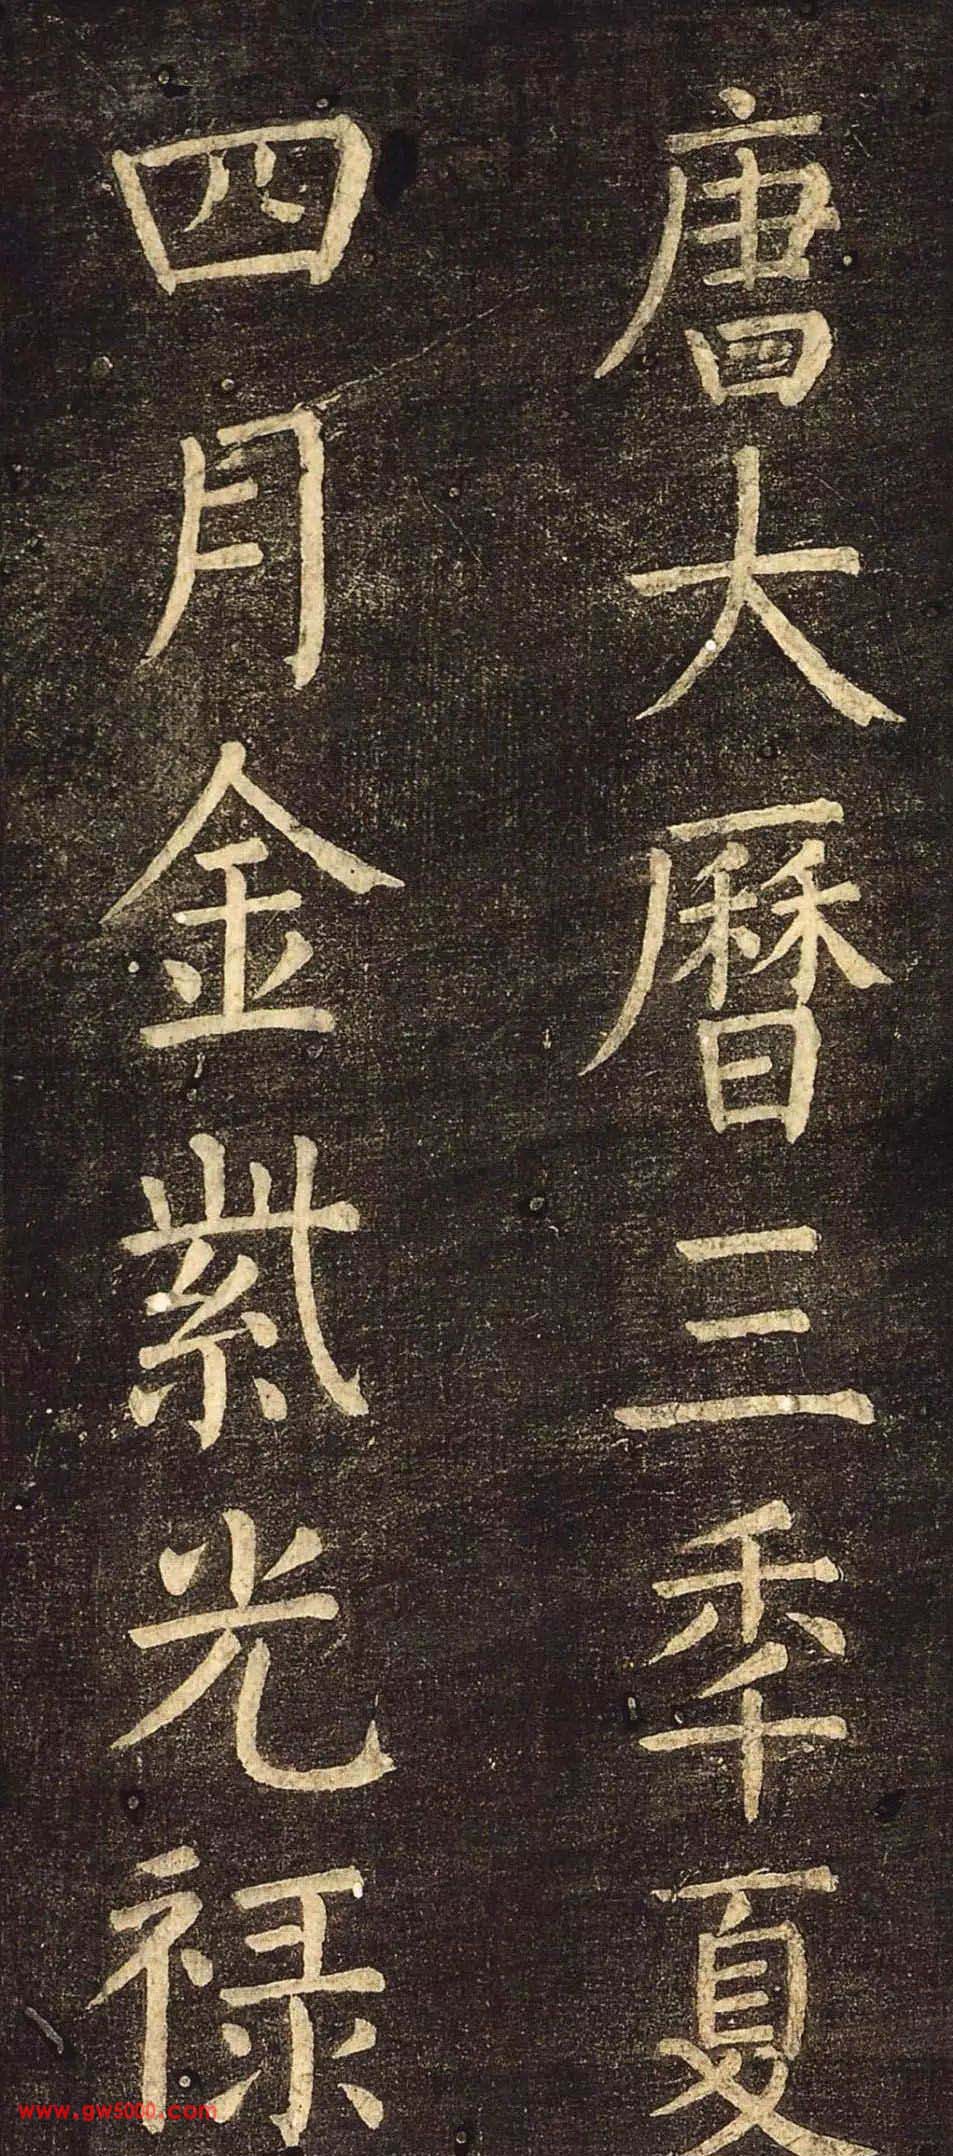 唐大曆三秊夏
四月金紫光禄
www.gw5000.com